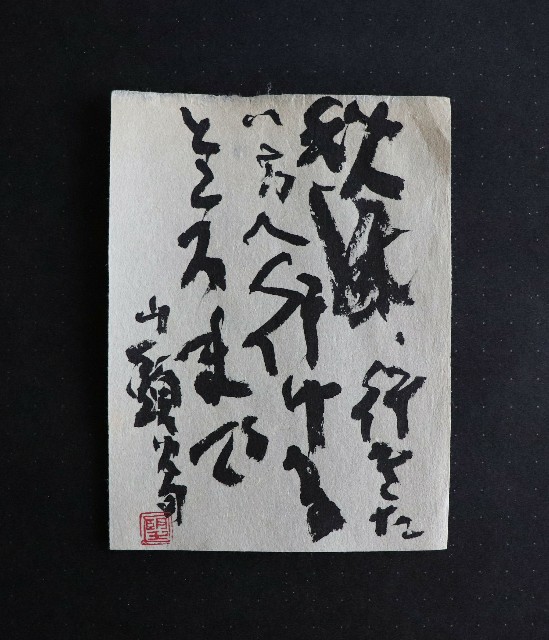 秋風、行きた
い方へ行ける
ところまで
山頭火句